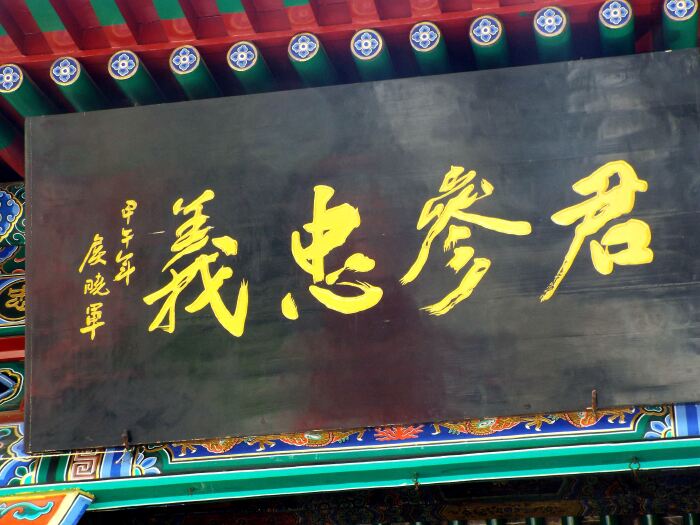 君參忠義
甲午年
晓軍